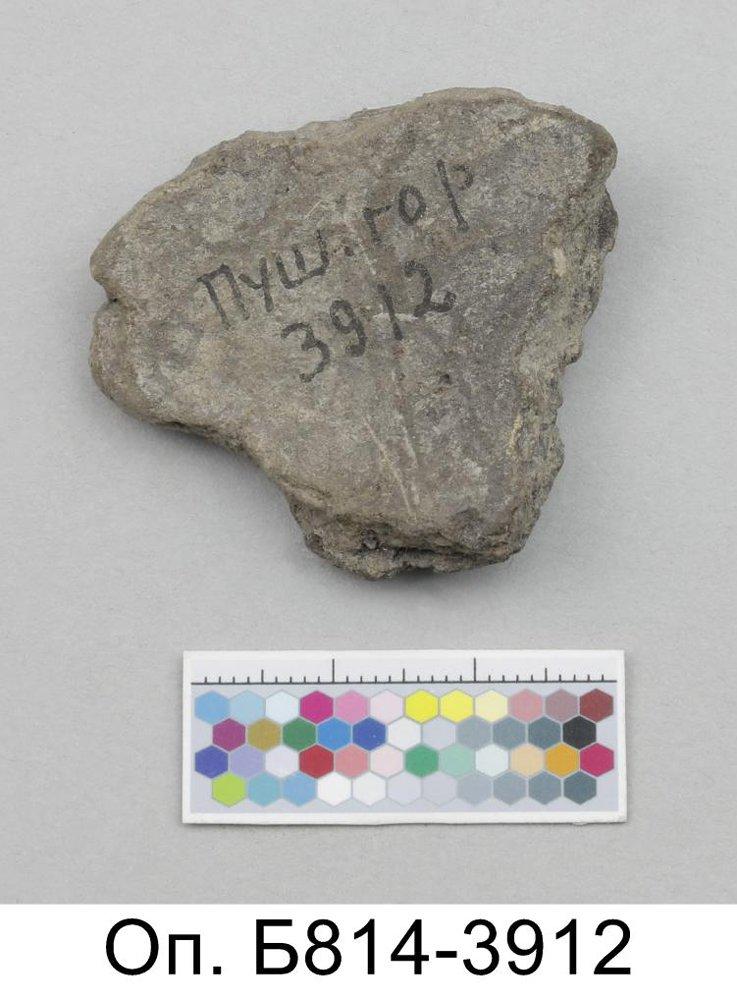 Пуш. гор
3912
Оп. Б814-3912